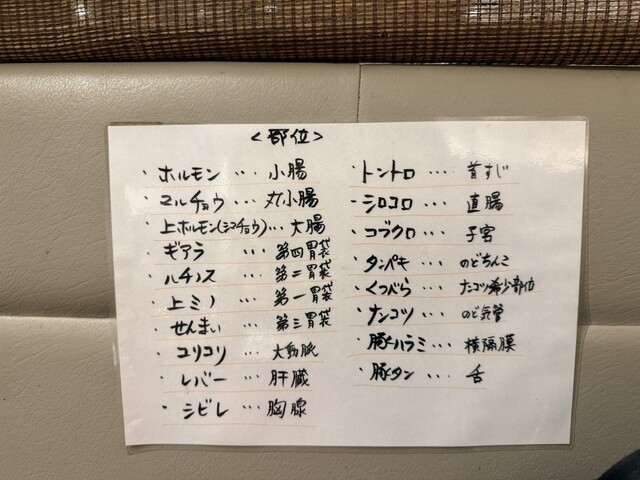 <部位>
・ホルモン … 小腸
・マルチョウ … 丸小腸
・上ホルモン(シマチョウ)… 大腸
・ギアラ … 第四胃袋
・ハチノス … 第二胃袋
・上ミノ … 第一胃袋
・せんまい … 第三胃袋
・コリコリ … 大動脈
・レバー … 肝臓
・シビレ … 胸腺
・トントロ … 首すじ
・シロコロ … 直腸
・コブクロ … 子宮
・タンペキ … のどちんこ
・くつべら … ナンコツ希少部位
・ナンコツ … のど気管
・豚ハラミ … 横隔膜
・豚タン … 舌